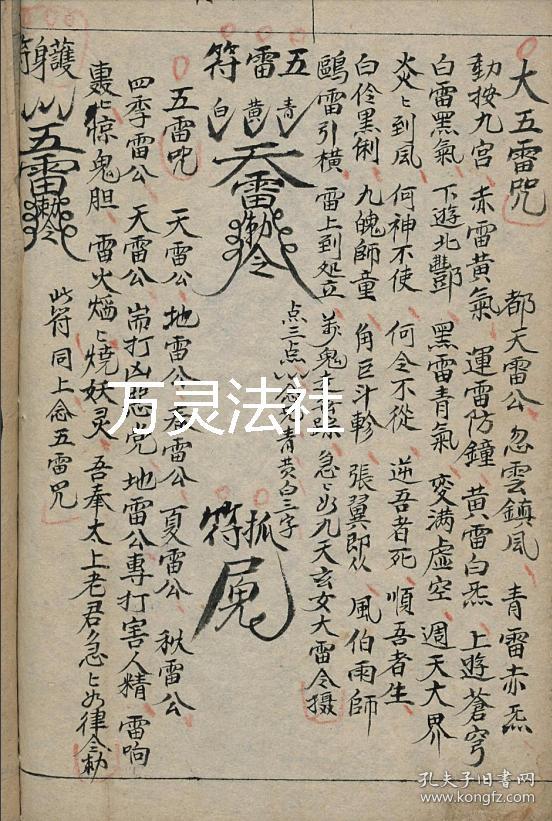 大五雷咒
都天雷公 忽雲鎮風 青雷赤炁
動按九宮 赤雷黃氣 運雷防鐘 黃雷白炁 上遊蒼穹
白雷黑氣 下遊北酆 黑雷青氣 变满虛空 週天大界
炎〻到風 何神不使 何令不從 逆吾者死 順吾者生
白伶黑俐 九魄師童 角巨斗軫 張翼即从 風伯雨師
鷗雷引横 雷上到处立 急〻如九天玄女大雷令摄
五雷符
青黃白
雷勅令
点三点 青黄白三字
抓符
五雷咒
天雷公 地雷公 雷公 夏雷公 秋雷公
四季雷公 天雷公 耑打凶 地雷公專打害人精 雷响
轟〻惊鬼胆 雷火焰〻燒妖灵 吾奉太上老君急〻如律令勅
護身符
五雷勅令
此符同上念五雷咒
万灵法社
孔夫子旧书网
www.kongfz.com